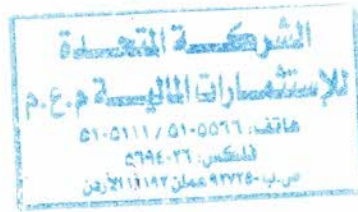 الشركة المتحدة
للإستثمارات المالية م.ع.م
هاتف: ٥١٠٥٥٦٦ / ٥١٠٥١١١
فاكس: ٥٦٩٤٠٢٦
ص.ب ٩٢٧٢٥٠ عمان ١١١٩٢ الأردن